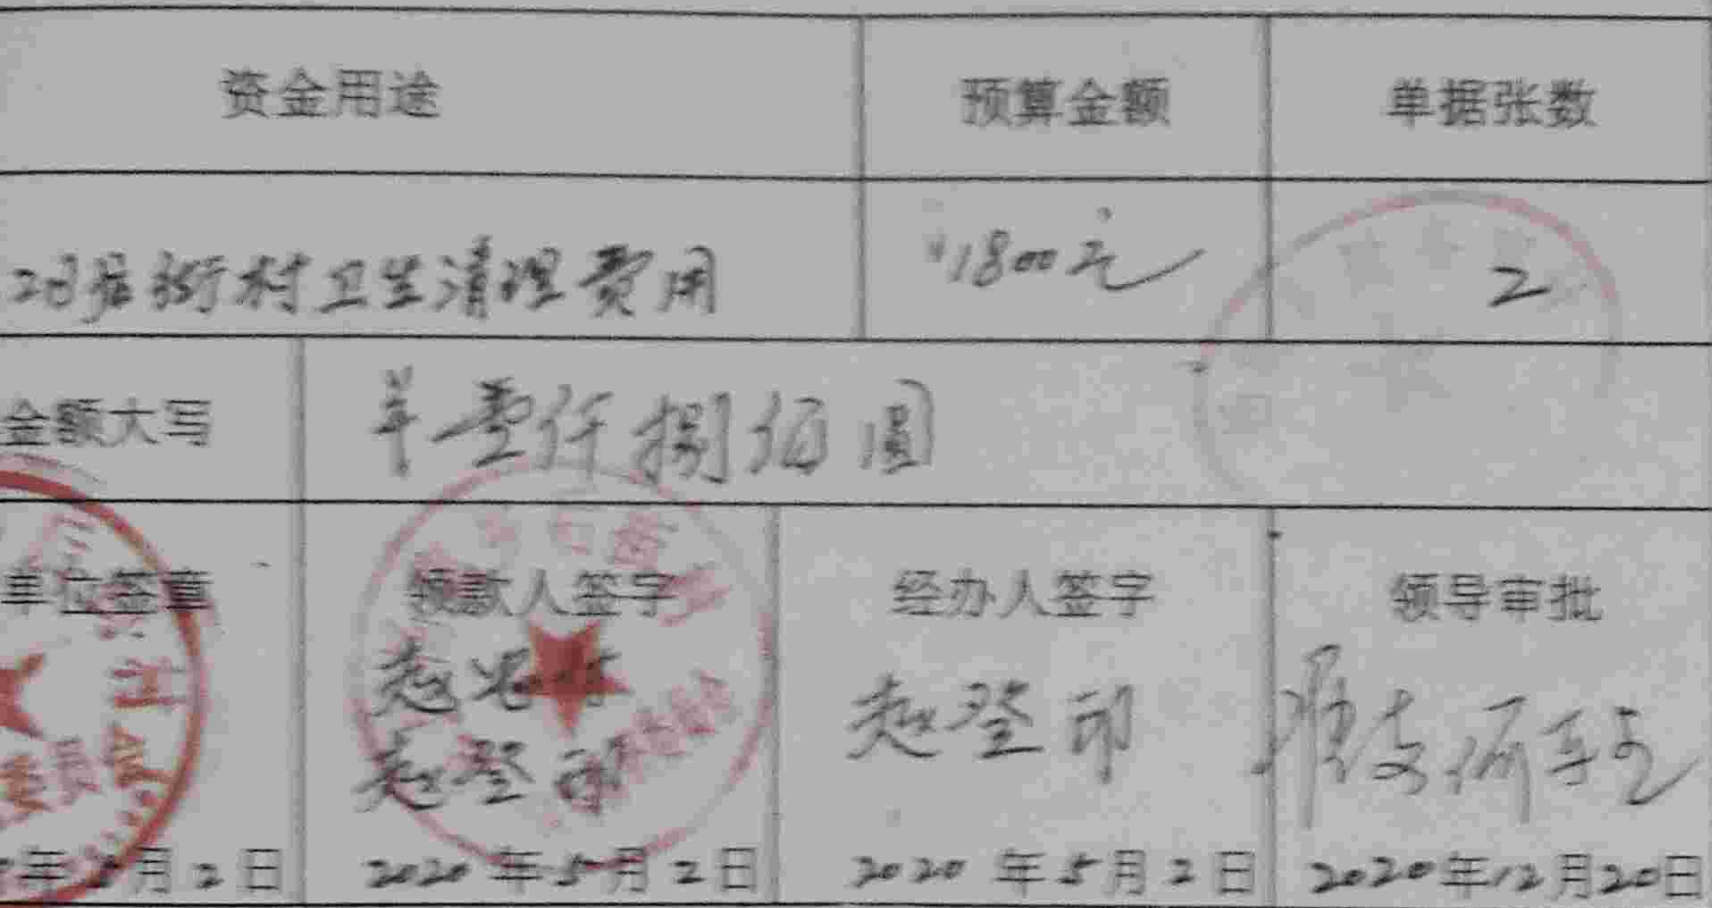 资金用途 预算金额 单据张数
街村卫生清理费用 ¥1800元 2
金额大写 壹仟捌佰圆
单位签章 领款人签字 经办人签字 领导审批
赵
赵登印 赵登印 准支
年 月2日 2020年5月2日 2020年5月2日 2020年12月20日